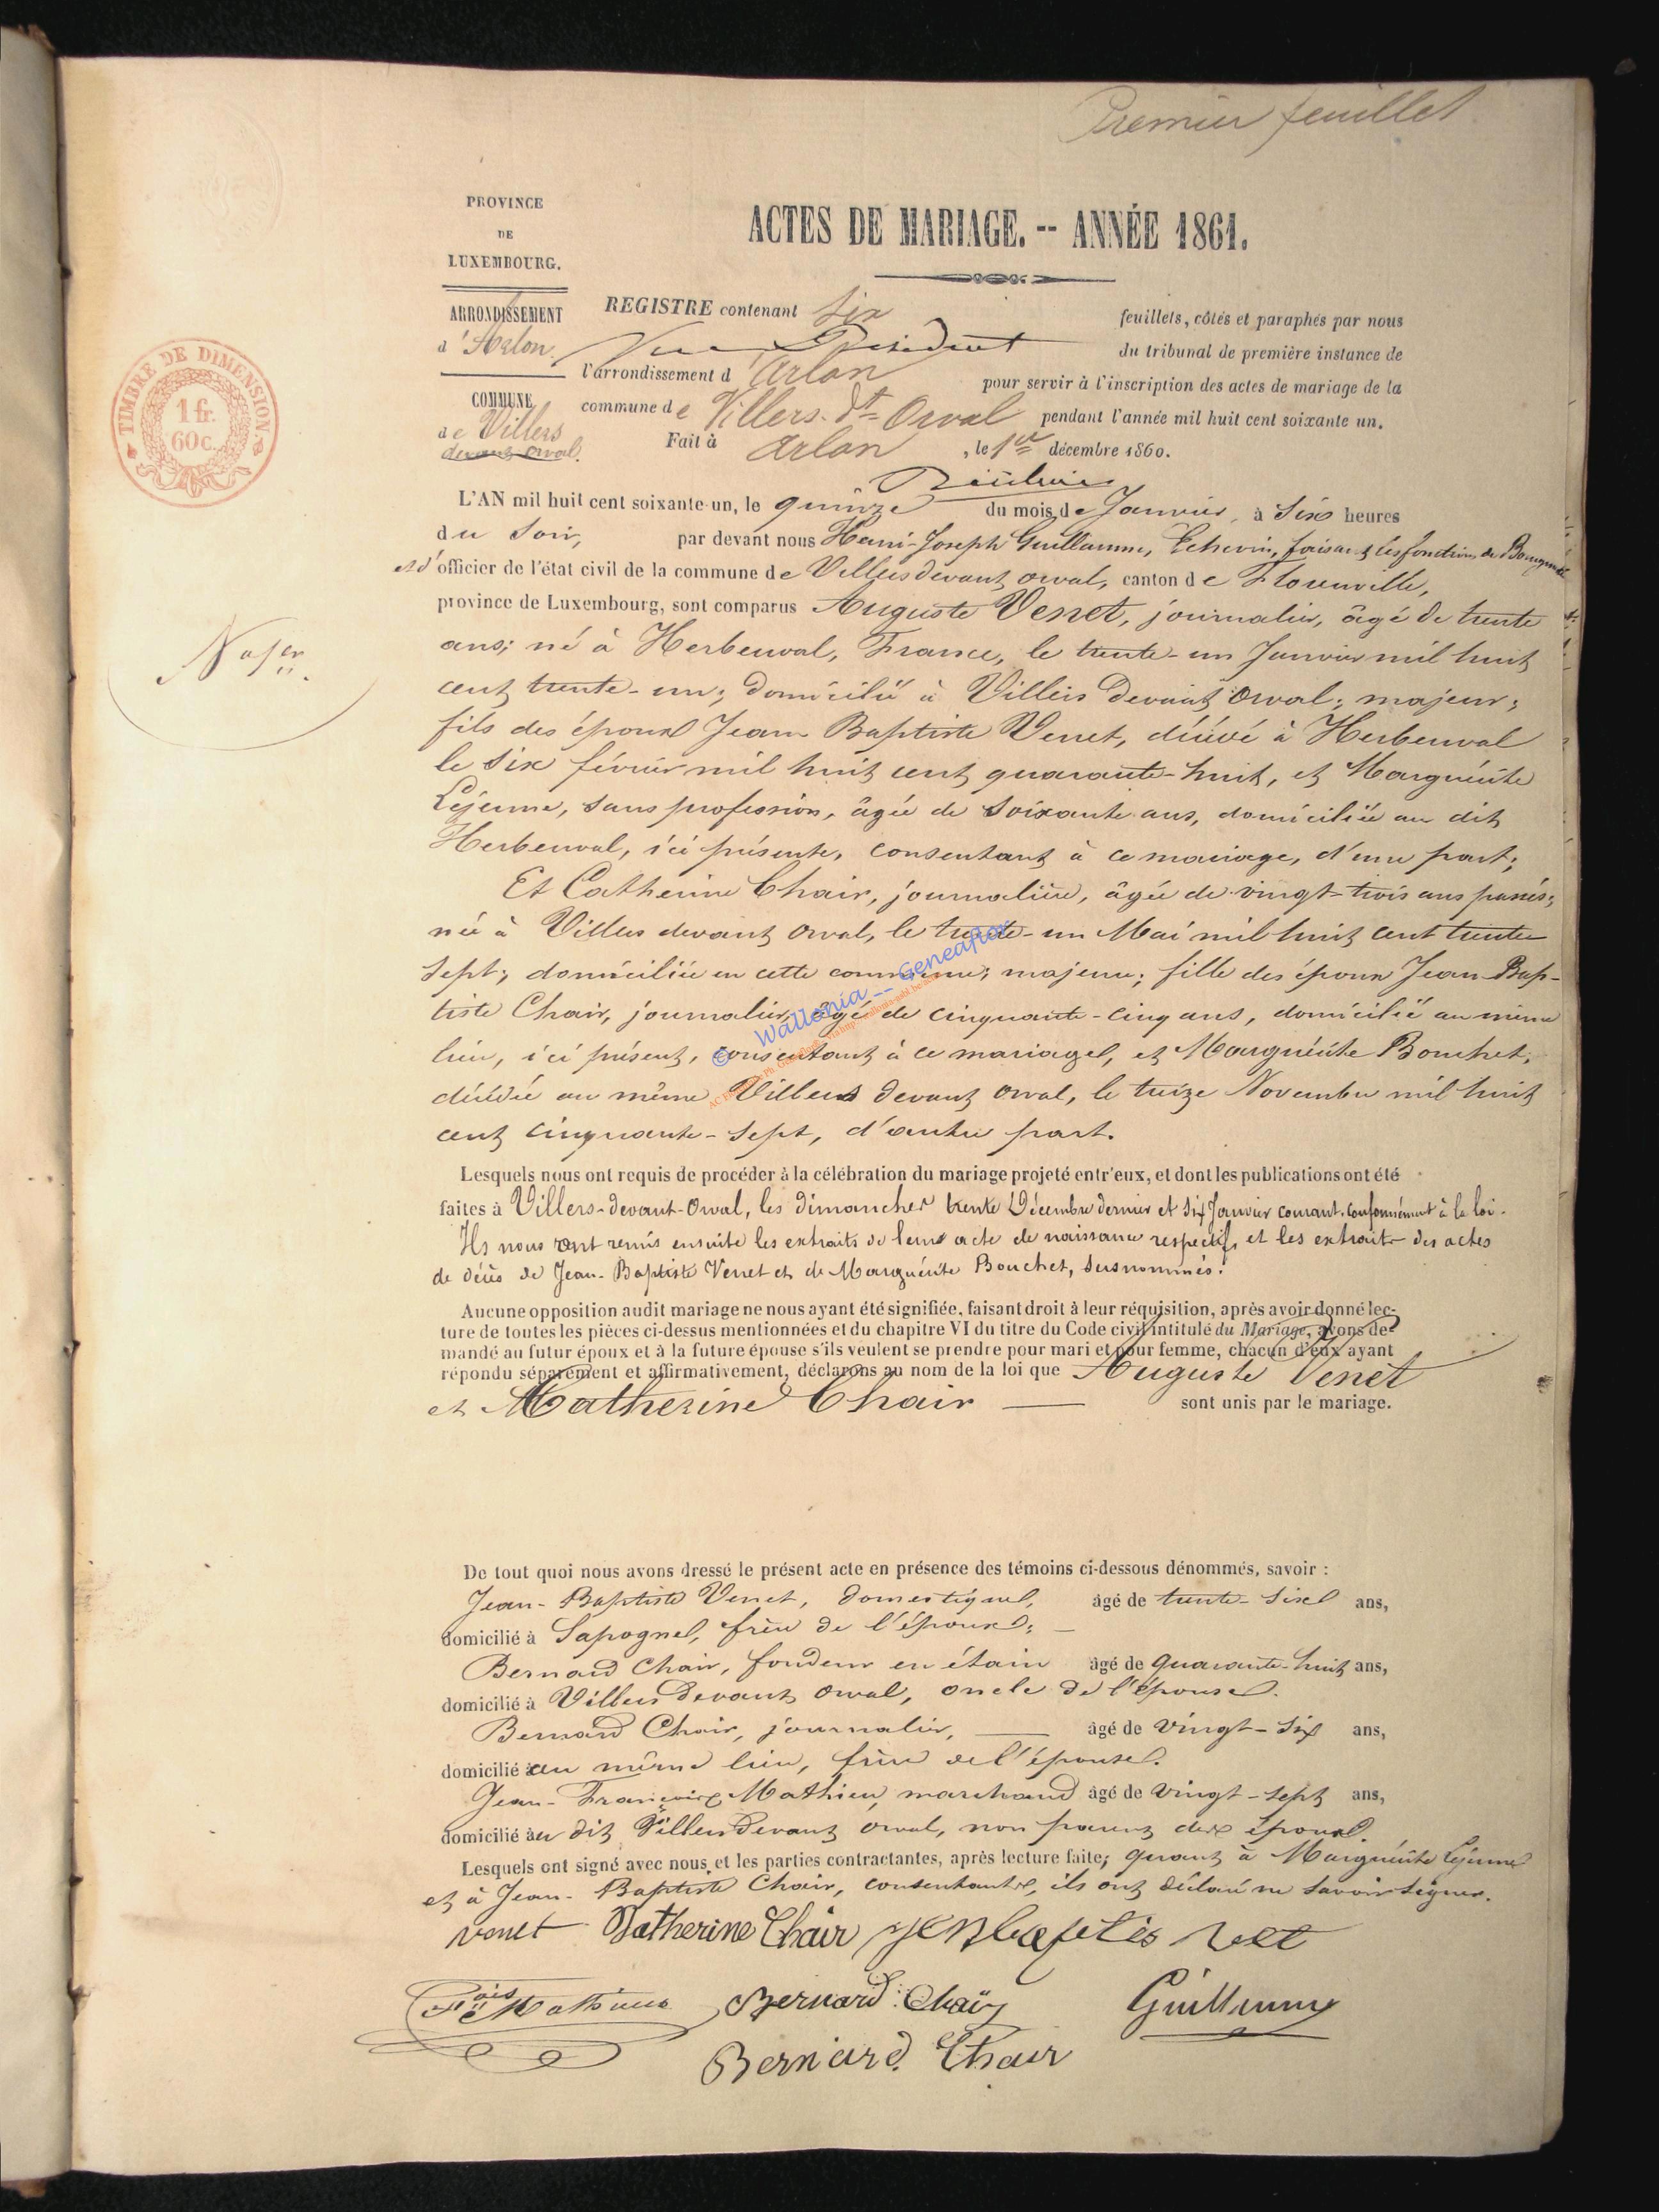 Premier feuillet
PROVINCE
DE
LUXEMBOURG.
ACTES DE MARIAGE. -- ANNÉE 1861.
ARRONDISSEMENT
d'Arlon.
COMMUNE
de Villers
devant Orval.
TIMBRE DE DIMENSION.
1 fr.
60c.
REGISTRE contenant six feuillets, côtés et paraphés par nous
Vice Président du tribunal de première instance de
l'arrondissement d'Arlon pour servir à l'inscription des actes de mariage de la
commune de Villers-dt-Orval pendant l'année mil huit cent soixante un.
Fait à Arlon, le 1er décembre 1860.
L'AN mil huit cent soixante-un, le quinze du mois de Janvier, à six heures
du soir, par devant nous Henri-Joseph Guillaume, Echevin, faisant les fonctions de Bourgmestre
et d'officier de l'état civil de la commune de Villers devant orval, canton de Florenville,
province de Luxembourg, sont comparus Auguste Venet, journalier, âgé de trente
ans; né à Herbeuval, France, le trente-un Janvier mil huit
cent trente-un; domicilié à Villers devant orval; majeur;
fils des époux Jean Baptiste Venet, décédé à Herbeuval
le six février mil huit cent quarante-huit, et Marguérite
Lejeune, sans profession, âgée de soixante ans, domiciliée au dit
Herbeuval, ici présente, consentant à ce mariage, d'une part;
Et Catherine Chair, journalière, âgée de vingt-trois ans passés;
née à Villers devant orval, le trente-un Mai mil huit cent trente
sept; domiciliée en cette commune; majeure; fille des époux Jean-Bap-
tiste Chair, journalier, âgé de cinquante-cinq ans, domicilié au même
lieu, ici présent, consentant à ce mariage, et Marguérite Bouchet,
décédée au même Villers devant orval, le treize Novembre mil huit
cent cinquante-sept, d'autre part.
No 1er.
© Wallonia -- Geneaflor
Lesquels nous ont requis de procéder à la célébration du mariage projeté entr'eux, et dont les publications ont été
faites à Villers-devant-Orval, les dimanches trente Décembre dernier et six Janvier courant, conformément à la loi.
Ils nous ont remis ensuite les extraits de leurs acte de naissance respectifs, et les extraits des actes
de décès de Jean-Baptiste Venet et de Marguérite Bouchet, susnommés.
Aucune opposition audit mariage ne nous ayant été signifiée, faisant droit à leur réquisition, après avoir donné lec-
ture de toutes les pièces ci-dessus mentionnées et du chapitre VI du titre du Code civil intitulé du Mariage, avons de-
mandé au futur époux et à la future épouse s'ils veulent se prendre pour mari et pour femme, chacun d'eux ayant
répondu séparément et affirmativement, déclarons au nom de la loi que Auguste Venet
et Catherine Chair sont unis par le mariage.
De tout quoi nous avons dressé le présent acte en présence des témoins ci-dessous dénommés, savoir :
Jean-Baptiste Venet, domestique, âgé de trente-six ans,
domicilié à Sapogne, frère de l'époux;
Bernard Chair, fondeur en étain âgé de quarante-huit ans,
domicilié à Villers devant orval, oncle de l'épouse.
Bernard Chair, journalier, âgé de vingt-six ans,
domicilié au même lieu, frère de l'épouse.
Jean-François Mathieu, marchand âgé de vingt-sept ans,
domicilié au dit Villers devant orval, non parent des époux.
Lesquels ont signé avec nous et les parties contractantes, après lecture faite; quant à Marguérite Lejeune
et à Jean-Baptiste Chair, consentants, ils ont déclaré ne savoir signer.
venet Catherine Chair
Bernard Chair
Bernard Chair